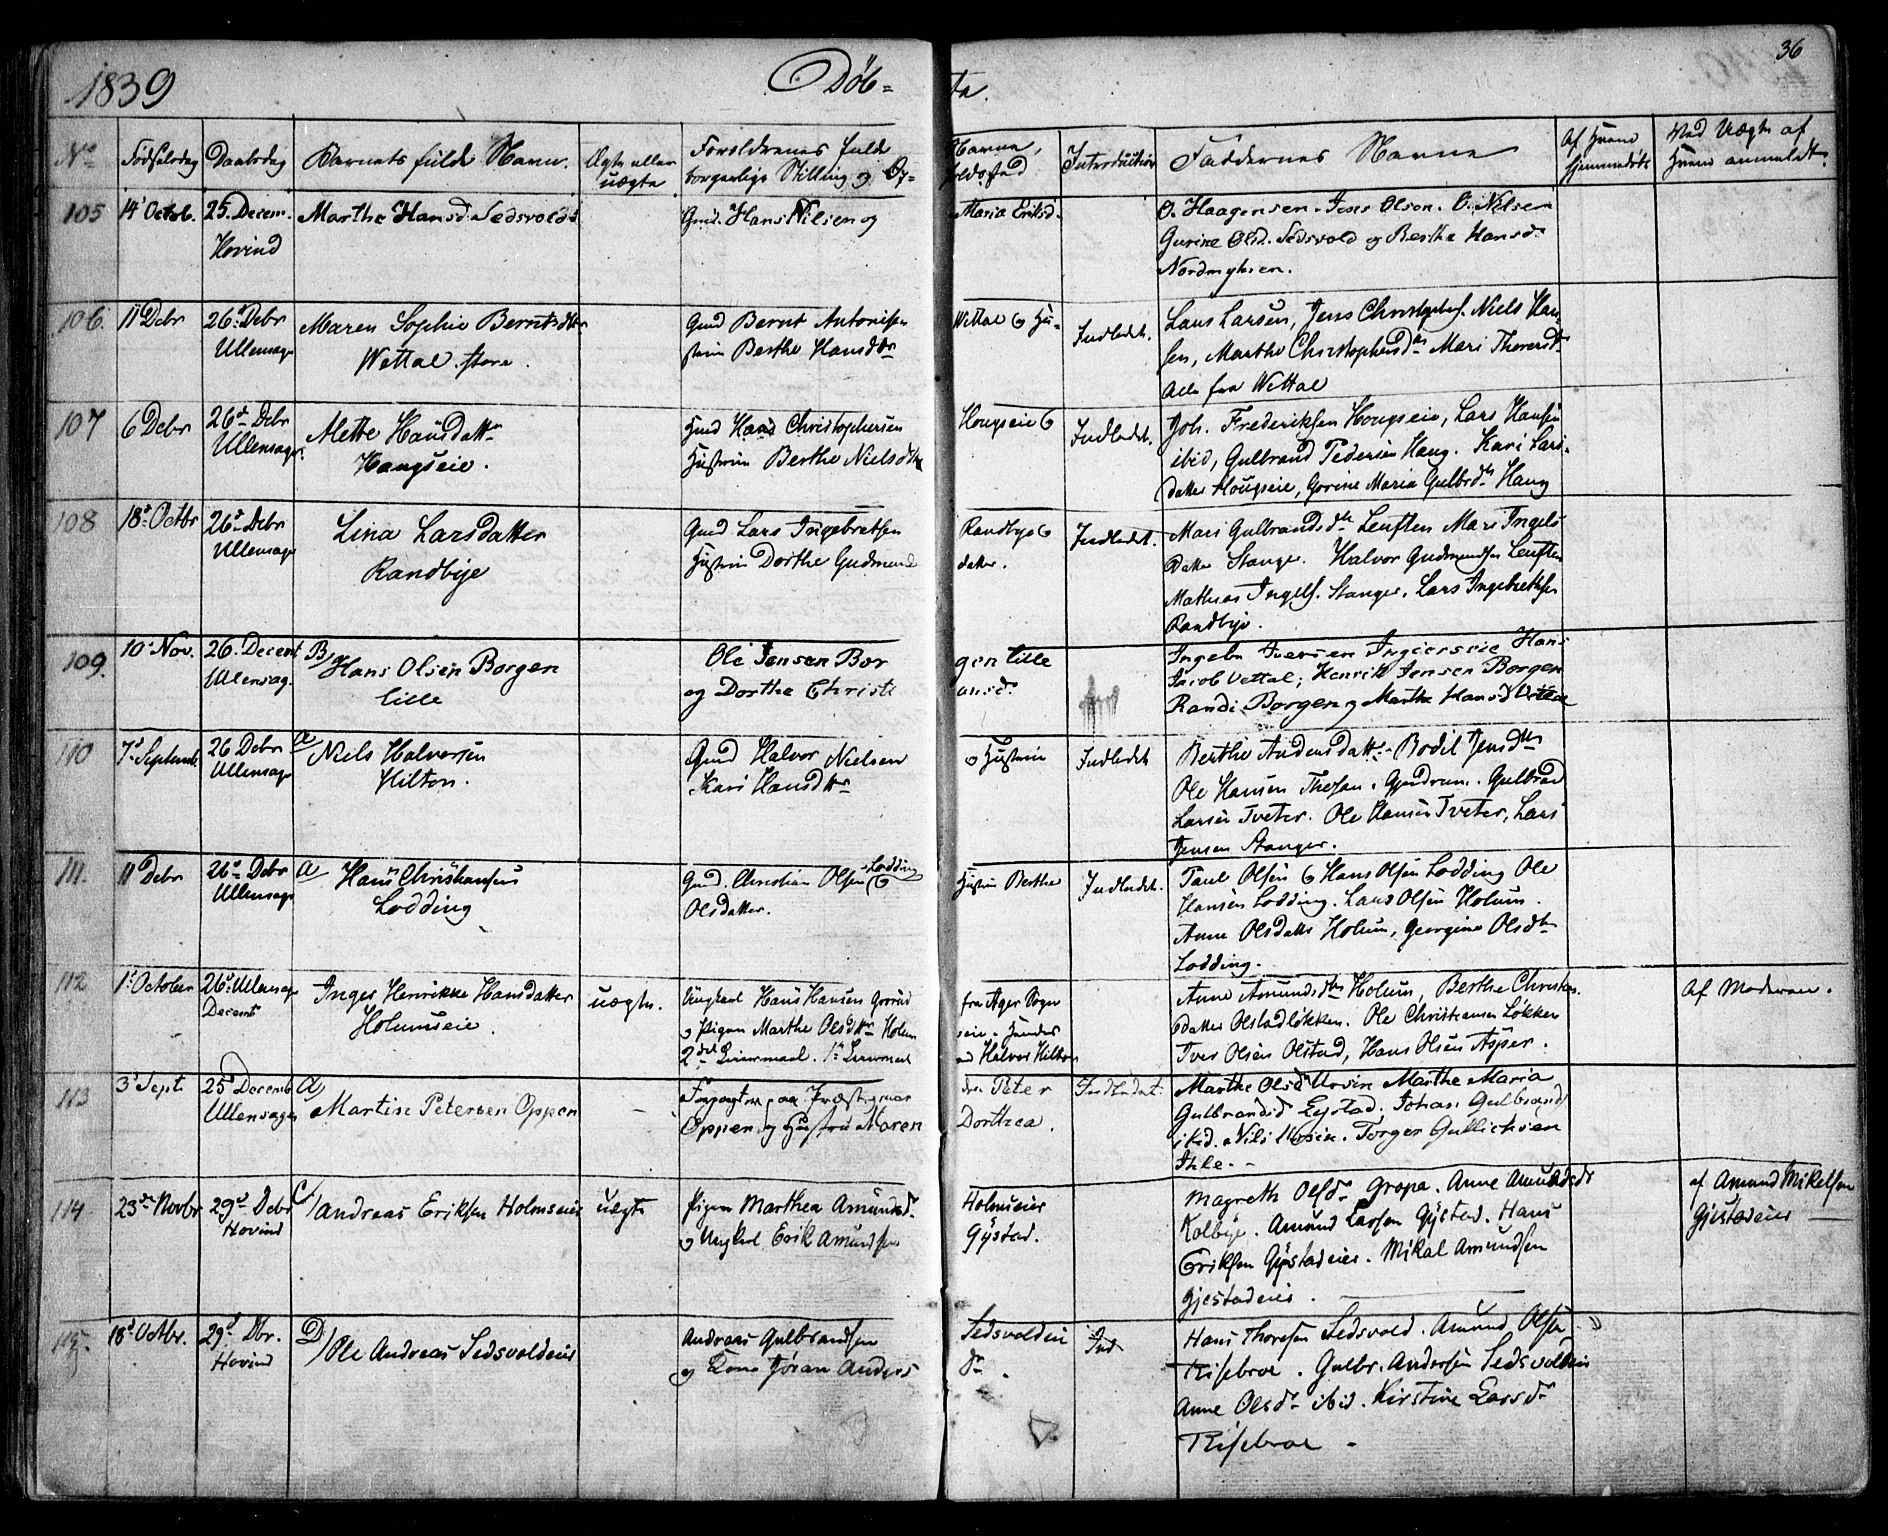 1839
Døb=
te.
36
No
Fødselsdag
Daabsdag
Barnets fulde Navn.
Ægte eller
uægte
Forældrenes fulde
borgerlige Stilling og Bo=
Navne,
pælsstad
Introduction
Faddernes Navne
Af Hvem
hjemmedøbt
Ved Uægte af
Hvem anmeldt.
105
14 Octob.
25. Decem.
Hovind
Marthe Hansd. Sedsvold
Gmd. Hans Nilsen og
Maria Eriksd.
O. Haagensen. Jens Olsen. O. Nilsen
Gurine Olsd. Sedsvold og Berthe Hansd.
Nordmyhren.
106.
11 Debr
26d Debr
Ullensager
Maren Sophie Berntsdtter
Wettal store.
Gmd Bernt Antonisen
strue Berthe Hansdtr
Wettal & Hu=
Indledet.
Lars Larsen, Jens Christophes. Niels Han=
sen, Marthe Christophersdtr Mari Thoresdtr
Alle fra Wettal
107
6 Debr
26d Debr
Ullensager.
Mette Hansdatter
Haugseie.
Gmd Hans Christophersen
Hustrue Berthe Nielsdtr
Hougseie &
Indledet.
Joh. Frederiksen Hougseie, Lars Hansen
ibid, Gulbrand Pedersen Haug. Kari Lars=
datter Hougseie, Gorine Maria Gulbrdtr Haug
108
18d Octbr
26d Debr
Ullensager
Lina Larsdatter
Randbye
Gmd Lars Ingebretsen
Hustrue Dorthe Gudmund
Randbye &
datter.
Indledet.
Mari Gulbrandsdtr Leuften Mari Ingels
datter Stanger. Halvor Gudmundsen Leuften
Mathias Ingels. Stanger. Lars Ingebretsen
Randbye.
109.
10d Nov.
26. Decembr
Ullensag.
B/ Hans Olsen Borgen
lille
Ole Jensen Bor
og Dorthe Christi
gen lille
ansd.
Ingebr Iversen Ingierseie Hans
Jacob Vettal; Henrik Jensen Borgen
Randi Borgen og Marthe Hansd Vettal
110
7d Septemb.
26 Debr
Ullensager
a/ Niels Halvorsen
Hilton.
Gmd Halvor Nielsen
Kari Hansdtr
& Hustrue
Indledet
Berthe Andersdatter. Bodil Jensdtr
Ole Hansen Thesen. Gjndrum. Gulbrand
Larsen Tveter. Ole Hansen Tveter, Lars
Jensen Stanger.
111.
11 Debr
26d Debr
Ullensager
a/ Hans Christiansen
Lodding
Gmd. Christian Olsen Lodding &
Olsdatter.
Hustrue Berthe
Indledet.
Paul Olsen & Hans Olsen Lodding Ole
Hansen Lodding. Lars Olsen Holum.
Anne Olsdatter Holum, Georgine Olsdtr
Lodding.
112
1d October
26d Ullensager
Decembr
Inger Henrikke Hansdatter
Holumseie.
uægte.
Ungkarl Hans Hansen
& Pigen Marthe Olsdtr Holum
2det Leiermaal. 1ste Leiermaal
fra Ager Sogn
seie. Hendes
Halvor Hilton
Anne Amundsdtr Holum, Berthe Christians
datter Olstadløkken. Ole Christiansen Løkken
Iver Olsen Olstad, Hans Olsen Asper.
Af Moderen.
113
3d Sept.
25d Decemb
Ullensager
a/
Martin Petersen Oppen
—
Forpagter paa Præstegaar
Oppen og Hustru Maren
den Peter
Dorthea.
Indledet
Marthe Olsd Ursin Marthe Maria
Gulbrandsd Eystad; Johan Gulbrands
ibid. Nils Mosen. Torger Gullichsen
Ihle. —
114
23de Novbr
29d Debr
Hovind
C/ Andreas Eriksen Holmseie
uægte
Pigen Marthea Amundsd.
& Ungkrl Erik Amundsen
Holmseier
Gystad.
Magreth Olsdr Gropa. Anne Amundsdr
Kolbye. Amund Larsen Gystad. Hans
Eriksen Gystadeier. Mikal Amundsen
Gjestadeier.
af Amund Mikelsen
Gjestadeier —
115.
18d Octbr.
29d Dbr.
Hovind
D/ Ole Andreas Sedsvoldeier
Andreas Gulbrandsen
og Kone Jøran Anders
Sedsvoldeie
dr.
Ind
Hans Thoresen Sedsvold. Amund Olsen
Risebroe. Gulbr. Andersen Sedsvoldeie
Anne Olsdr ibid. Kirstine Larsdr
Risebroe —